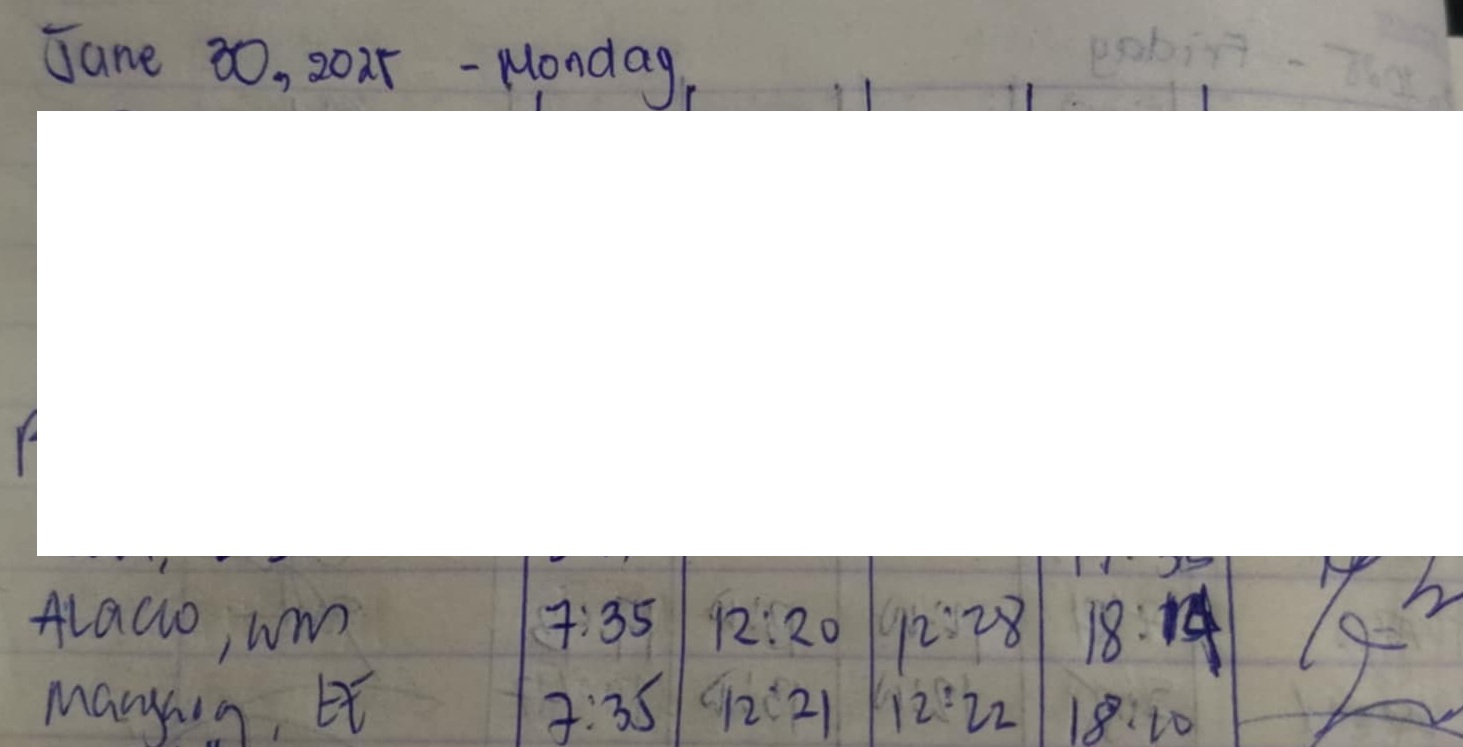 June 30, 2025 - Monday
Alacio, wm 7:35 12:20 12:28 18:14
EE 7:35 12:21 12:22 18:20